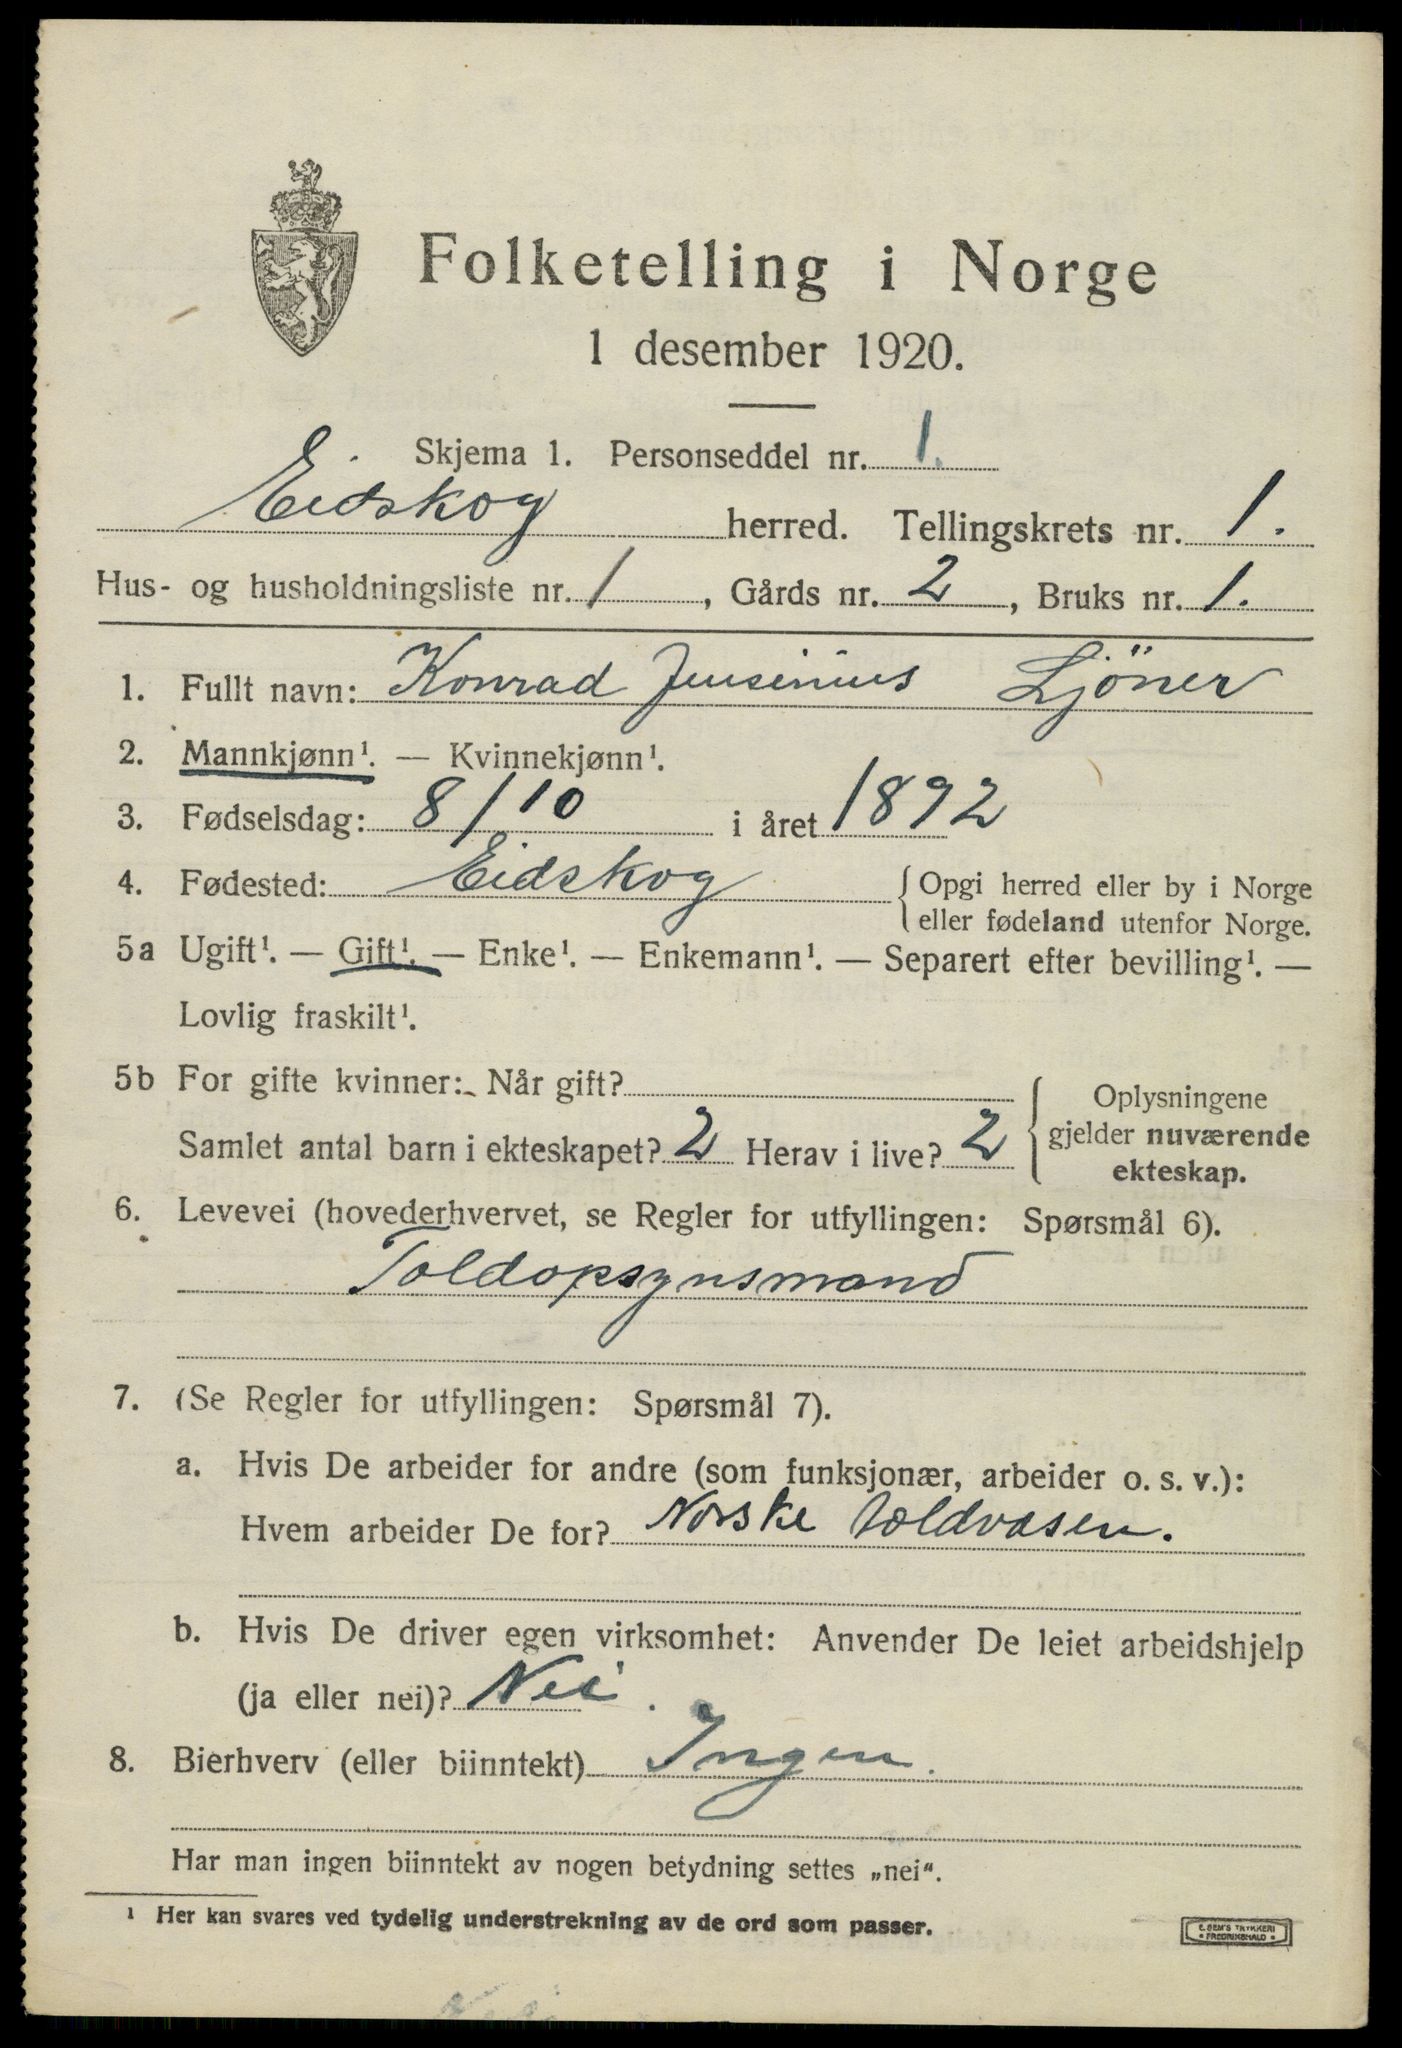 Folketelling i Norge
1 desember 1920.
Skjema 1. Personseddel nr. 1.
Eidskog herred. Tellingskrets nr. 1.
Hus- og husholdningsliste nr. 1, Gårds nr. 2, Bruks nr. 1.
1. Fullt navn: Konrad Jensinius Ljöner
2. Mannkjønn¹. — Kvinnekjønn¹.
3. Fødselsdag: 8/10 i året 1892
4. Fødested: Eidskog {Opgi herred eller by i Norge
eller fødeland utenfor Norge.
5a Ugift¹. — Gift¹. — Enke¹. — Enkemann¹. — Separert efter bevilling¹. —
Lovlig fraskilt¹.
5b For gifte kvinner: Når gift?
Samlet antal barn i ekteskapet? 2 Herav i live? 2
Oplysningene
gjelder nuværende
ekteskap.
6. Levevei (hovederhvervet, se Regler for utfyllingen: Spørsmål 6).
Toldopsynsmand
7. (Se Regler for utfyllingen: Spørsmål 7).
a. Hvis De arbeider for andre (som funksjonær, arbeider o. s. v.):
Hvem arbeider De for? Norske toldvæsen.
b. Hvis De driver egen virksomhet: Anvender De leiet arbeidshjelp
(ja eller nei)? Nei.
8. Bierhverv (eller biinntekt) Ingen.
Har man ingen biinntekt av nogen betydning settes „nei“.
¹ Her kan svares ved tydelig understrekning av de ord som passer.
E. SEM'S TRYKKERI
• FREDRIKSHALD •